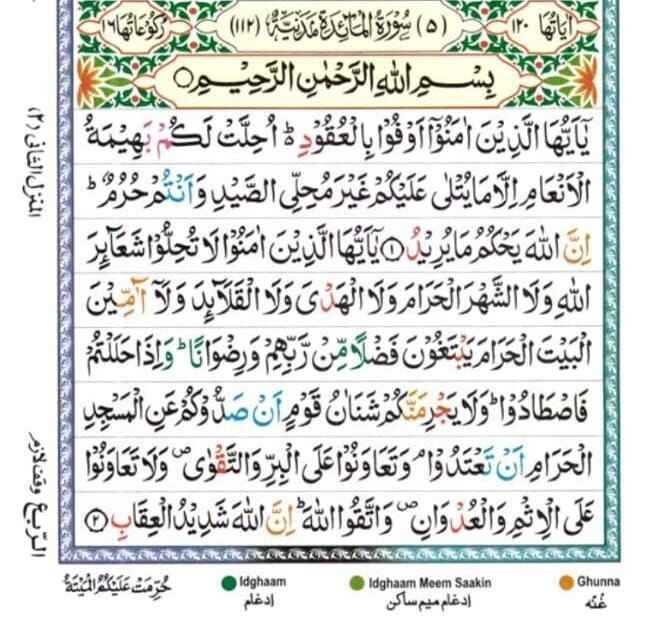 اٰیَاتُهَا ۱۲۰
(۵) سُوْرَةُ الْمَآئِدَةِ مَدَنِیَّةٌ (۱۱۲)
رُكُوْعَاتُهَا ۱۶
بِسْمِ اللّٰهِ الرَّحْمٰنِ الرَّحِیْمِ
یٰۤاَیُّهَا الَّذِیْنَ اٰمَنُوْۤا اَوْفُوْا بِالْعُقُوْدِ ؕ اُحِلَّتْ لَكُمْ بَهِیْمَةُ
الْاَنْعَامِ اِلَّا مَا یُتْلٰی عَلَیْكُمْ غَیْرَ مُحِلِّی الصَّیْدِ وَاَنْتُمْ حُرُمٌ ؕ
اِنَّ اللّٰهَ یَحْكُمُ مَا یُرِیْدُ ۱ یٰۤاَیُّهَا الَّذِیْنَ اٰمَنُوْا لَا تُحِلُّوْا شَعَآئِرَ
اللّٰهِ وَلَا الشَّهْرَ الْحَرَامَ وَلَا الْهَدْیَ وَلَا الْقَلَآئِدَ وَلَاۤ آٰمِّیْنَ
الْبَیْتَ الْحَرَامَ یَبْتَغُوْنَ فَضْلًا مِّنْ رَّبِّهِمْ وَرِضْوَانًا ؕ وَاِذَا حَلَلْتُمْ
فَاصْطَادُوْا ؕ وَلَا یَجْرِمَنَّكُمْ شَنَاٰنُ قَوْمٍ اَنْ صَدُّوْكُمْ عَنِ الْمَسْجِدِ
الْحَرَامِ اَنْ تَعْتَدُوْا ۘ وَتَعَاوَنُوْا عَلَی الْبِرِّ وَالتَّقْوٰی ۪ وَلَا تَعَاوَنُوْا
عَلَی الْاِثْمِ وَالْعُدْوَانِ ۪ وَاتَّقُوا اللّٰهَ ؕ اِنَّ اللّٰهَ شَدِیْدُ الْعِقَابِ ۲
المنزل الثانی (۲)
وقف لازم
الربع
حُرِّمَتْ عَلَیْكُمُ الْمَیْتَةُ
Idghaam
ادغام
Idghaam Meem Saakin
ادغام میم ساکن
Ghunna
غُنّه